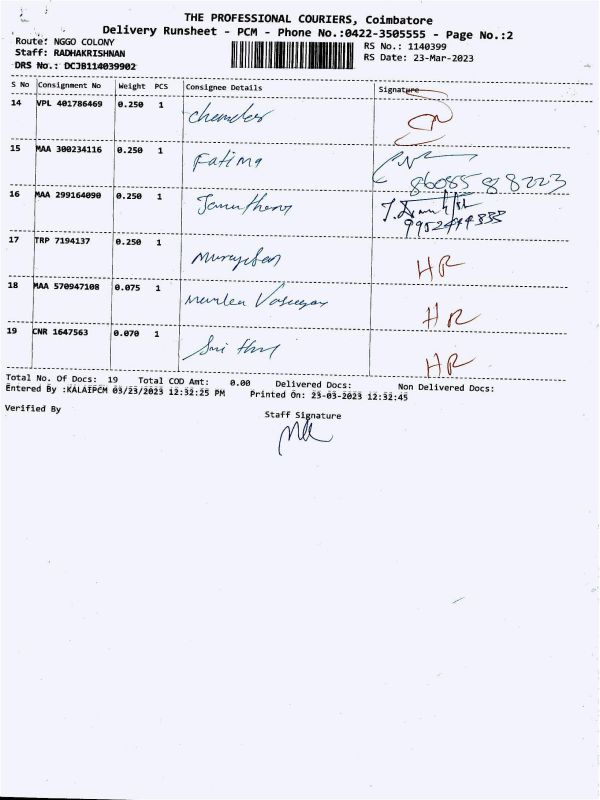 THE PROFESSIONAL COURIERS, Coimbatore
Delivery Runsheet - PCM - Phone No.:0422-3505555 - Page No.:2
Route: NGGO COLONY
Staff: RADHAKRISHNAN
DRS No.: DCJB114039902
RS No.: 1140399
RS Date: 23-Mar-2023
S No Consignment No Weight PCS Consignee Details Signature
14 VPL 401786469 0.250 1 Chander
15 MAA 300234116 0.250 1 Fatima
8608588223
16 MAA 299164090 0.250 1
9952444333
17 TRP 7194137 0.250 1 HR
18 MAA 570947108 0.075 1 HR
19 CNR 1647563 0.070 1 HR
Total No. Of Docs: 19 Total COD Amt: 0.00 Delivered Docs: Non Delivered Docs:
Entered By :KALAIPCM 03/23/2023 12:32:25 PM Printed On: 23-03-2023 12:32:45
Verified By
Staff Signature